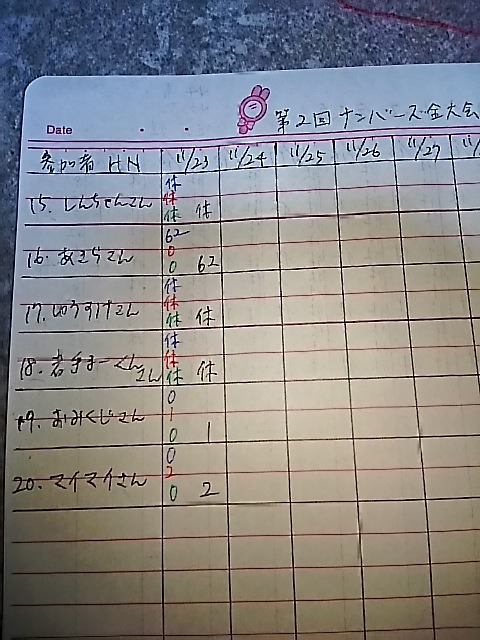 Date
第2回ナンバーズ全大会
参加者 HN 11/23 11/24 11/25 11/26 11/27 11/
休
休
15. しんちゃんさん 休 休
62
0
16. あきらさん 0 62
休
休
17. ゆうすけさん 休 休
休
18. 若手まーくん 休
さん 休 休
0
1
19. おみくじさん 0 1
0
2
20. マイマイさん 0 2